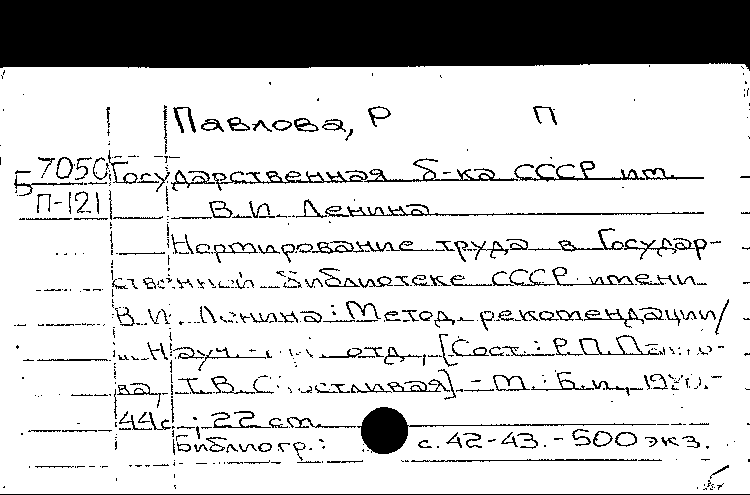 Павлова, Р П
Б 7050 Государственная б-ка СССР им.
П-121 В.И. Ленина
Нормирование труда в Государ-
ственной библиотеке СССР имени
В.И. Ленина: Метод. рекомендации/
Науч. отд., [Сост.: Р.П. Павло-
ва, Т.В. Счастливая]. - М.: Б.и.,
44с.; 22 см.
Библиогр.: с. 42-43. - 500 экз.